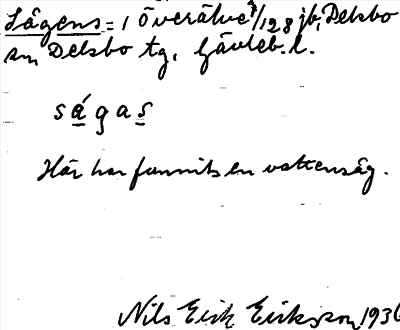 Sågens = 1 Överälve 1/128 jb, Delsbo
sn, Delsbo tg, Gävleb. l.
ságas
Här har funnits en vattensåg.
Nils Erik Eriksson 1936